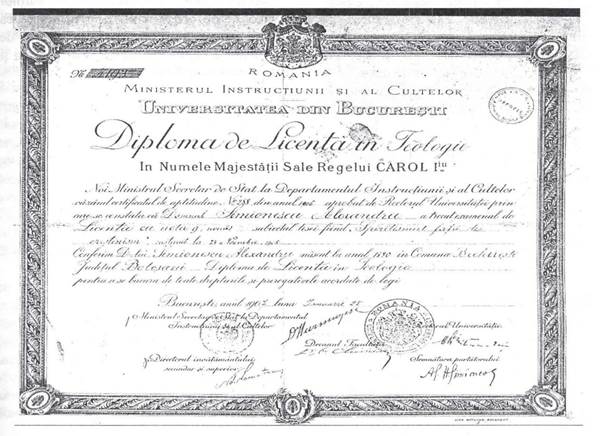 No.
ROMANIA
MINISTERUL INSTRUCȚIUNII ȘI AL CULTELOR
UNIVERSITATEA DIN BUCUREȘTI
Diploma de Licență în Teologie
In Numele Majestății Sale Regelui CAROL I
Noi Ministrul Secretar de Stat la Departamentul Instrucțiunii și al Cultelor
văzând certificatul de aptitudine No 288 din anul aprobat de Rectorul Universității prin
care se constată că Domnul Simionescu Alexandru a trecut examenul de
Licență cu nota 9, nouă subiectul tesei fiind Spiritismul față de
Creștinism susținută la 24
Conform D-lui Simionescu Alexandru născut la anul 1880 în Comuna
Județul Botoșani Diploma de Licență în Teologie
pentru a se bucura de toate drepturile și prerogativele acordate de legi
București, anul 1907 luna Ianuarie 25
Ministrul Secretar de Stat la Departamentul
Instrucțiunii și al Cultelor
Decanul Facultății
Rectorul Universității
Directorul învățământului
secundar și superior
Semnătura purtătorului
ROMANIA